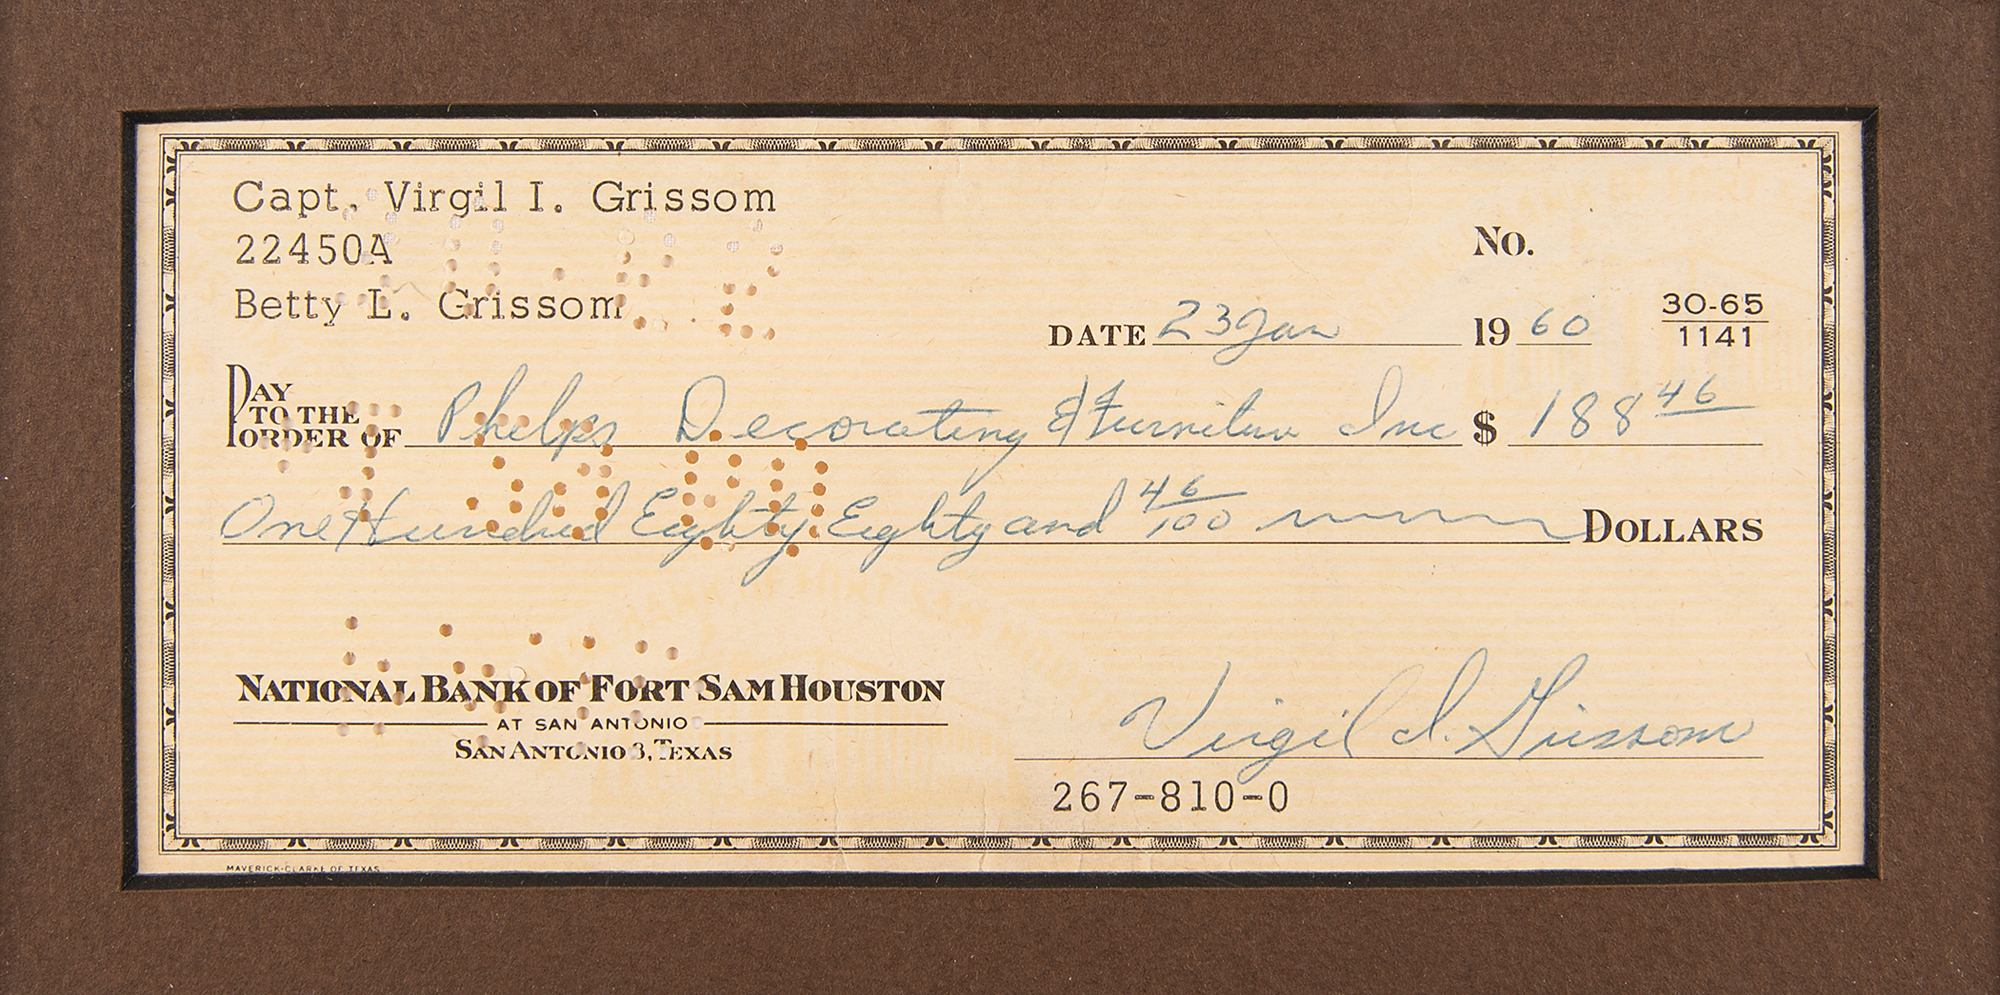 Capt. Virgil I. Grissom
22450A
Betty L. Grissom
No.
DATE 23 Jan 1960
30-65
1141
PAY TO THE ORDER OF Phelps Decorating & Furniture Inc $ 188 46
One Hundred Eighty Eighty and 46/100 DOLLARS
NATIONAL BANK OF FORT SAM HOUSTON
AT SAN ANTONIO
SAN ANTONIO 8, TEXAS
Virgil I. Grissom
267-810-0
MAVERICK-CLARKE OF TEXAS